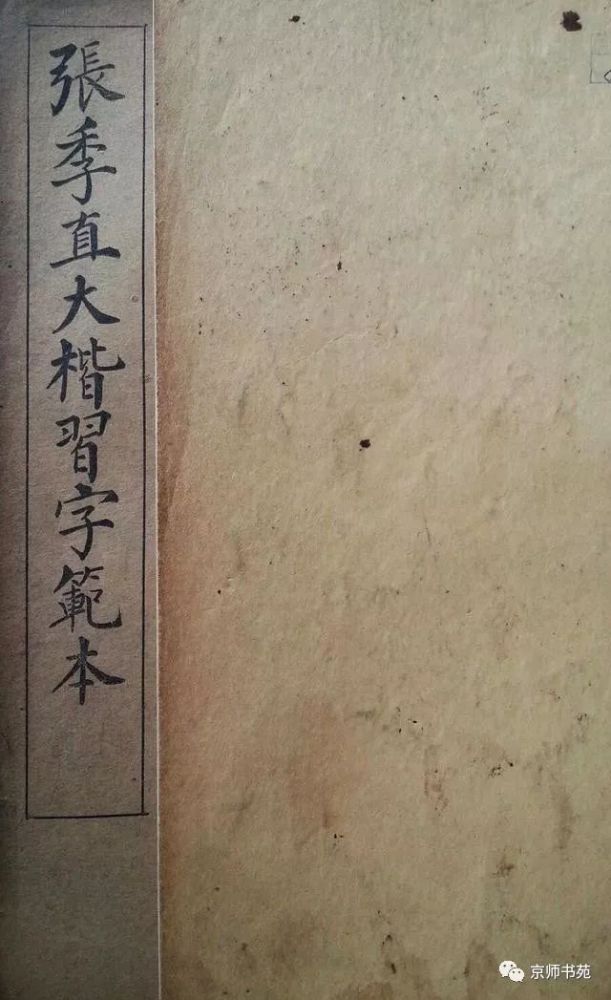 張季直大楷習字範本
京师书苑